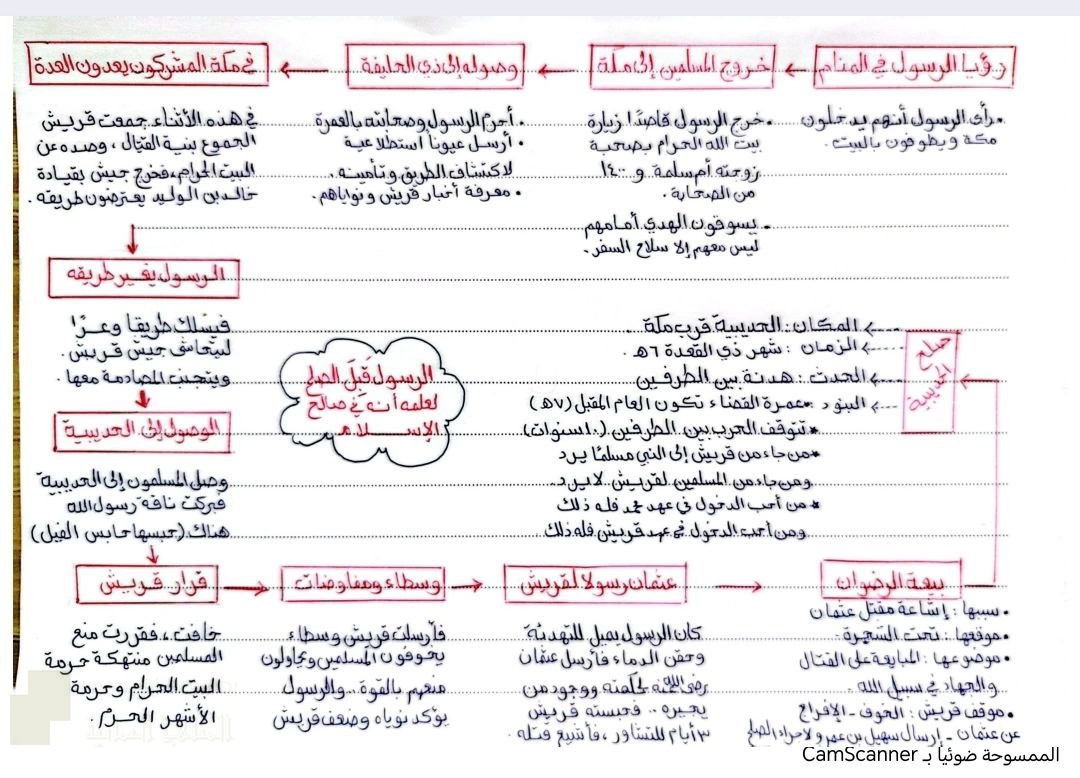 رؤيا الرسول في المنام
• رأى الرسول أنهم يدخلون
مكة ويطوفون بالبيت.
خروج المسلمين إلى مكة
• خرج الرسول قاصدًا زيارة
بيت الله الحرام بصحبة
زوجته أم سلمة و ١٤٠٠
من الصحابة.
• يسوقون الهدي أمامهم
ليس معهم إلا سلاح السفر.
وصوله إلى ذي الحليفة
• أحرم الرسول وصحابته بالعمرة
• أرسل عيونا استطلاعية
لاكتشاف الطريق وتأمينه.
• معرفة أخبار قريش ونواياهم.
في مكة المشركون يعدون العدة
في هذه الأثناء جمعت قريش
الجموع بنية القتال، وصده عن
البيت الحرام، فخرج جيش بقيادة
خالد بن الوليد يعترضون طريقه.
الرسول يغير طريقه
فيسلك طريقا وعرًا
ليتحاشى جيش قريش.
ويتجنب المصادمة معها.
الوصول إلى الحديبية
وصل المسلمون إلى الحديبية
فبركت ناقة رسول الله
هناك (حبسها حابس الفيل)
قرار قريش
خافت، فقررت منع
المسلمين منتهكة حرمة
البيت الحرام وحرمة
الأشهر الحرم.
وسطاء ومفاوضات
فأرسلت قريش وسطاء
يخوفون المسلمين ويحاولون
منعهم بالقوة.. والرسول
يؤكد نوياه وضعف قريش
عثمان رسولا لقريش
كان الرسول يميل للتهدئة
وحقن الدماء فأرسل عثمان
رضي الله عنه لحكمته ووجود من
يجيره .. فحبسته قريش
٣ أيام للتشاور، فأشيع قتله.
بيعة الرضوان
• سببها: إشاعة مقتل عثمان
• موقعها: تحت الشجرة.
• موضوعها: المبايعة على القتال
والجهاد في سبيل الله.
• موقف قريش: الخوف - الإفراج
عن عثمان - إرسال سهيل بن عمرو لإجراء الصلح
صلح الحديبية
المكان: الحديبية قرب مكة.
الزمان: شهر ذي القعدة ٦هـ.
الحدث: هدنة بين الطرفين
البنود: • عمرة القضاء تكون العام المقبل (٧هـ)
* تتوقف الحرب بين الطرفين (١٠ سنوات)
* من جاء من قريش إلى النبي مسلمًا يرد
ومن جاء من المسلمين لقريش لا يرد
* من أحب الدخول في عهد محمد فله ذلك
ومن أحب الدخول في عهد قريش فله ذلك
الرسول قَبِلَ الصلح
لعلمه أنه في صالح
الإسلام
الممسوحة ضوئيا بـ CamScanner